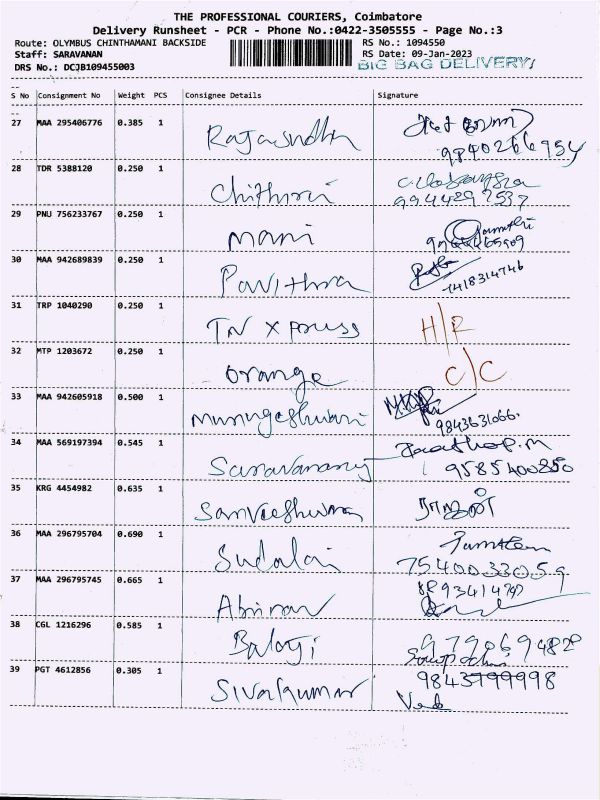 THE PROFESSIONAL COURIERS, Coimbatore
Delivery Runsheet - PCR - Phone No.:0422-3505555 - Page No.:3
Route: OLYMBUS CHINTHAMANI BACKSIDE RS No.: 1094550
Staff: SARAVANAN RS Date: 09-Jan-2023
DRS No.: DCJB109455003 BIG BAG DELIVERY
S No Consignment No Weight PCS Consignee Details Signature
27 MAA 295406776 0.385 1
Rajasudha
9840266954
28 TDR 5388120 0.250 1
Chithurai
9944292537
29 PNU 756233767 0.250 1
mani
30 MAA 942689839 0.250 1
Pavithra 7418314746
31 TRP 1040290 0.250 1
TN Xpress H/R
32 MTP 1203672 0.250 1
Orange C/C
33 MAA 942605918 0.500 1
Murugeshwari 9843631066.
34 MAA 569197394 0.545 1
Saravanan 9585400850
35 KRG 4454982 0.635 1
Sarveshwara
36 MAA 296795704 0.690 1
Sudalai 7540033059
37 MAA 296795745 0.665 1
Abirav
38 CGL 1216296 0.585 1
Balaji 979069482
39 PGT 4612856 0.305 1
Sivakumar 9843799998